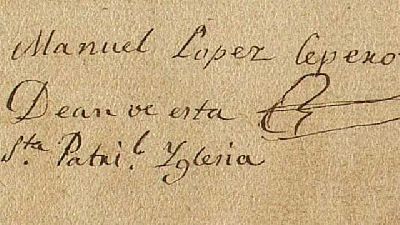 Manuel Lopez Cepero
Dean de esta
Sta Patril. Yglesia